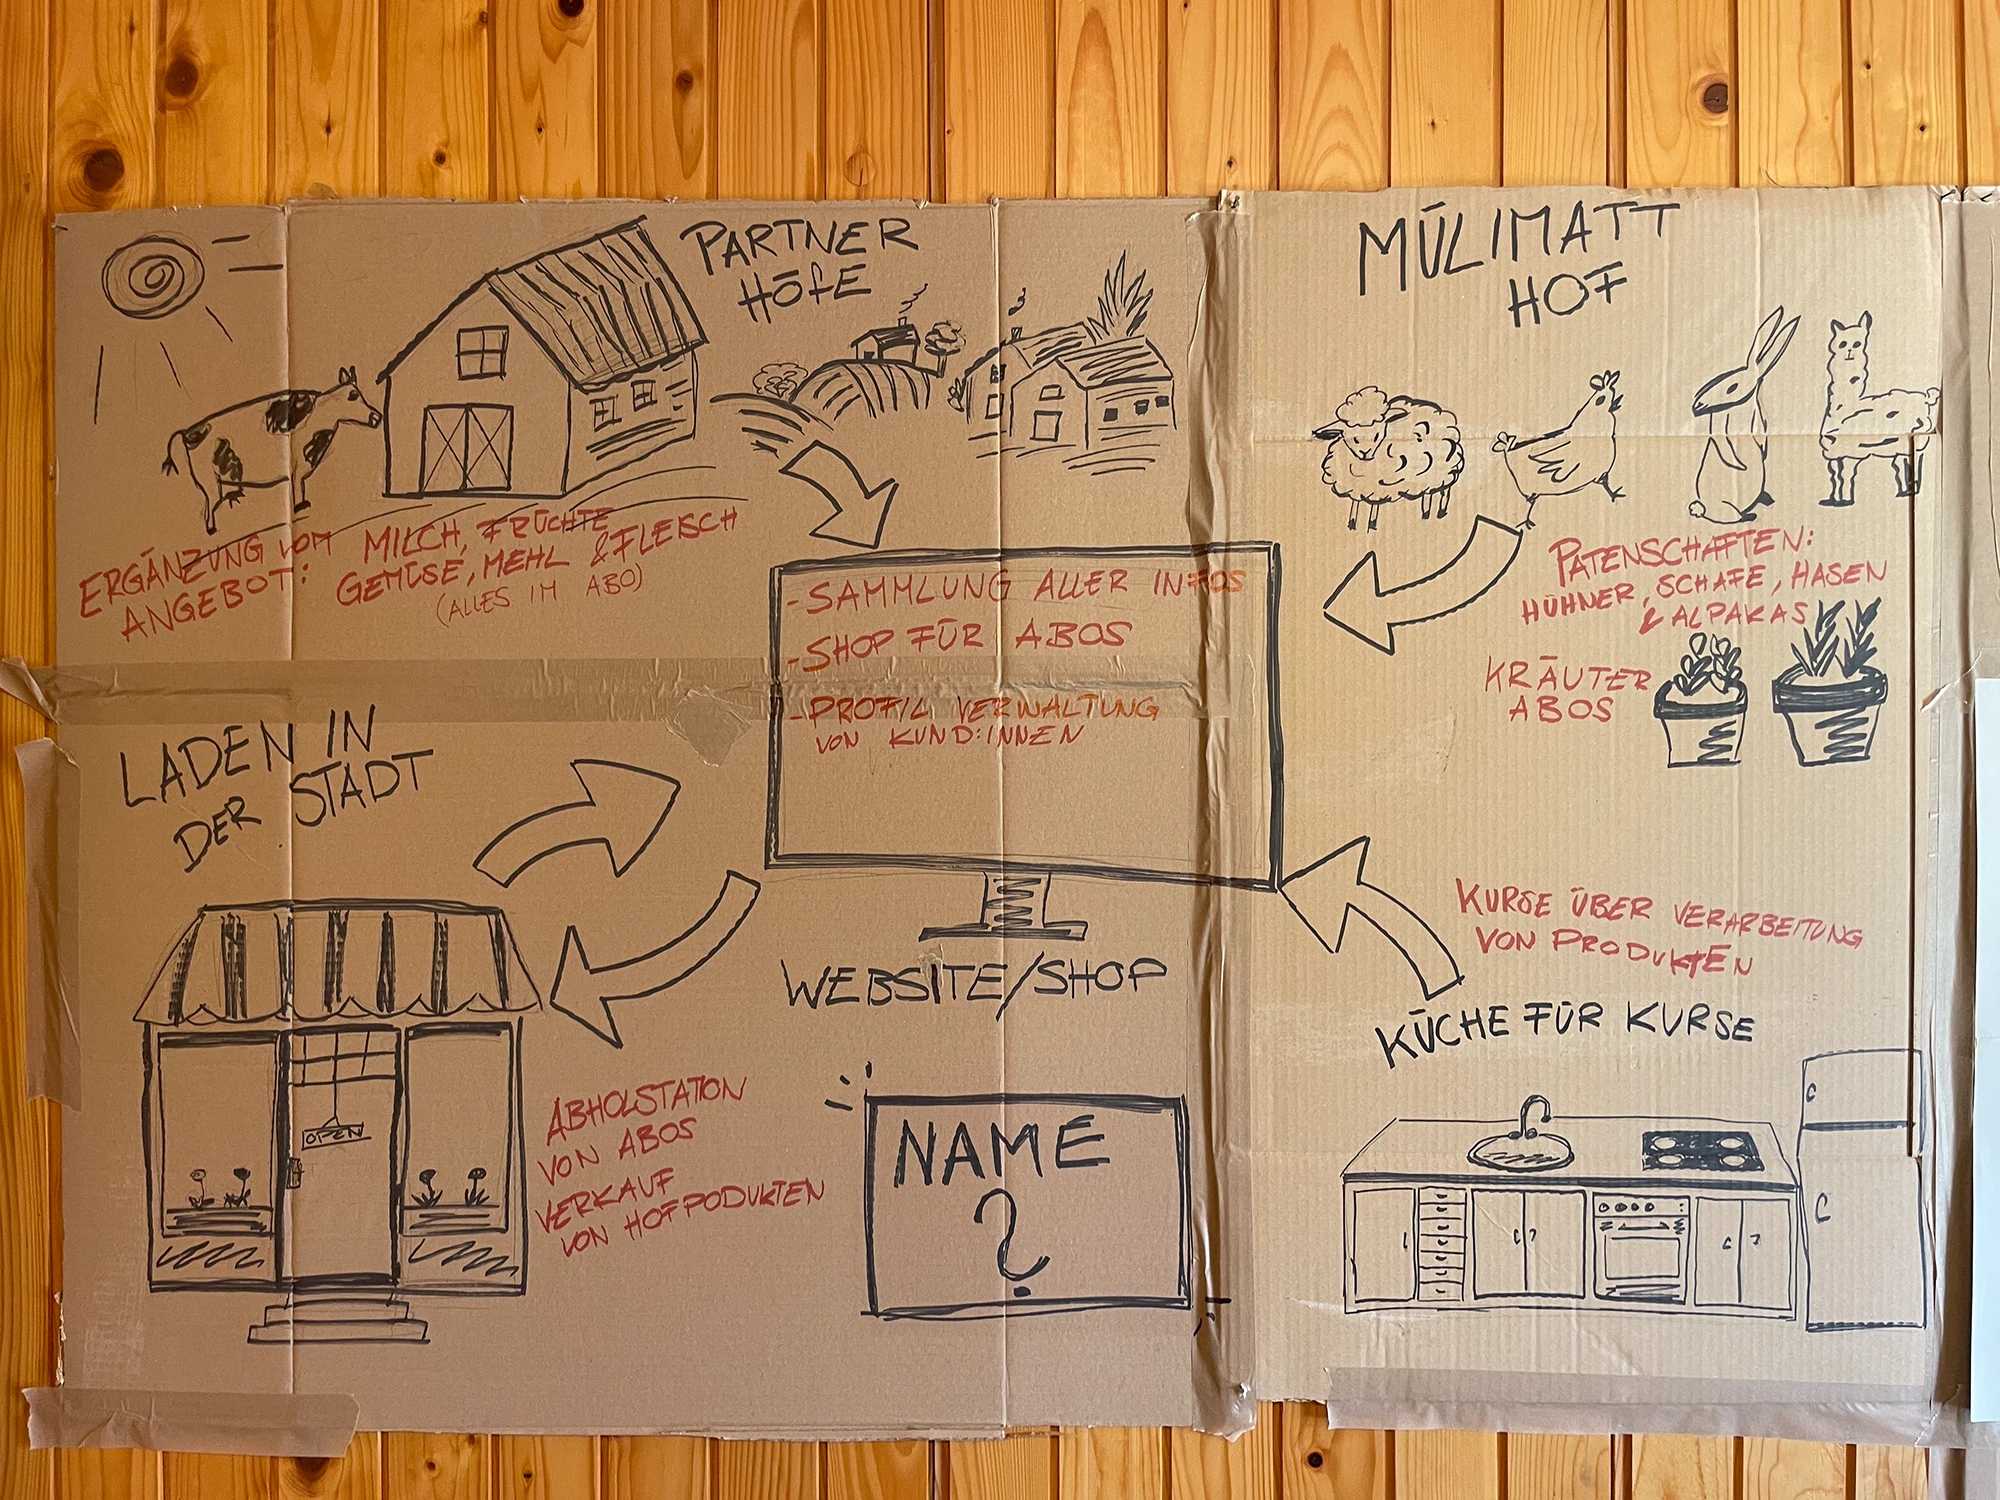 PARTNER
HÖFE
ERGÄNZUNG VOM
ANGEBOT:
MILCH, FRÜCHTE
GEMÜSE, MEHL & FLEISCH
(ALLES IM ABO)
MÜLIMATT
HOF
PATENSCHAFTEN:
HÜHNER, SCHAFE, HASEN
& ALPAKAS
KRÄUTER
ABOS
- SAMMLUNG ALLER INFOS
- SHOP FÜR ABOS
- PROFIL VERWALTUNG
VON KUND:INNEN
WEBSITE/SHOP
LADEN IN
DER STADT
OPEN
ABHOLSTATION
VON ABOS
VERKAUF
VON HOFPODUKTEN
NAME
?
KURSE ÜBER VERARBEITUNG
VON PRODUKTEN
KÜCHE FÜR KURSE